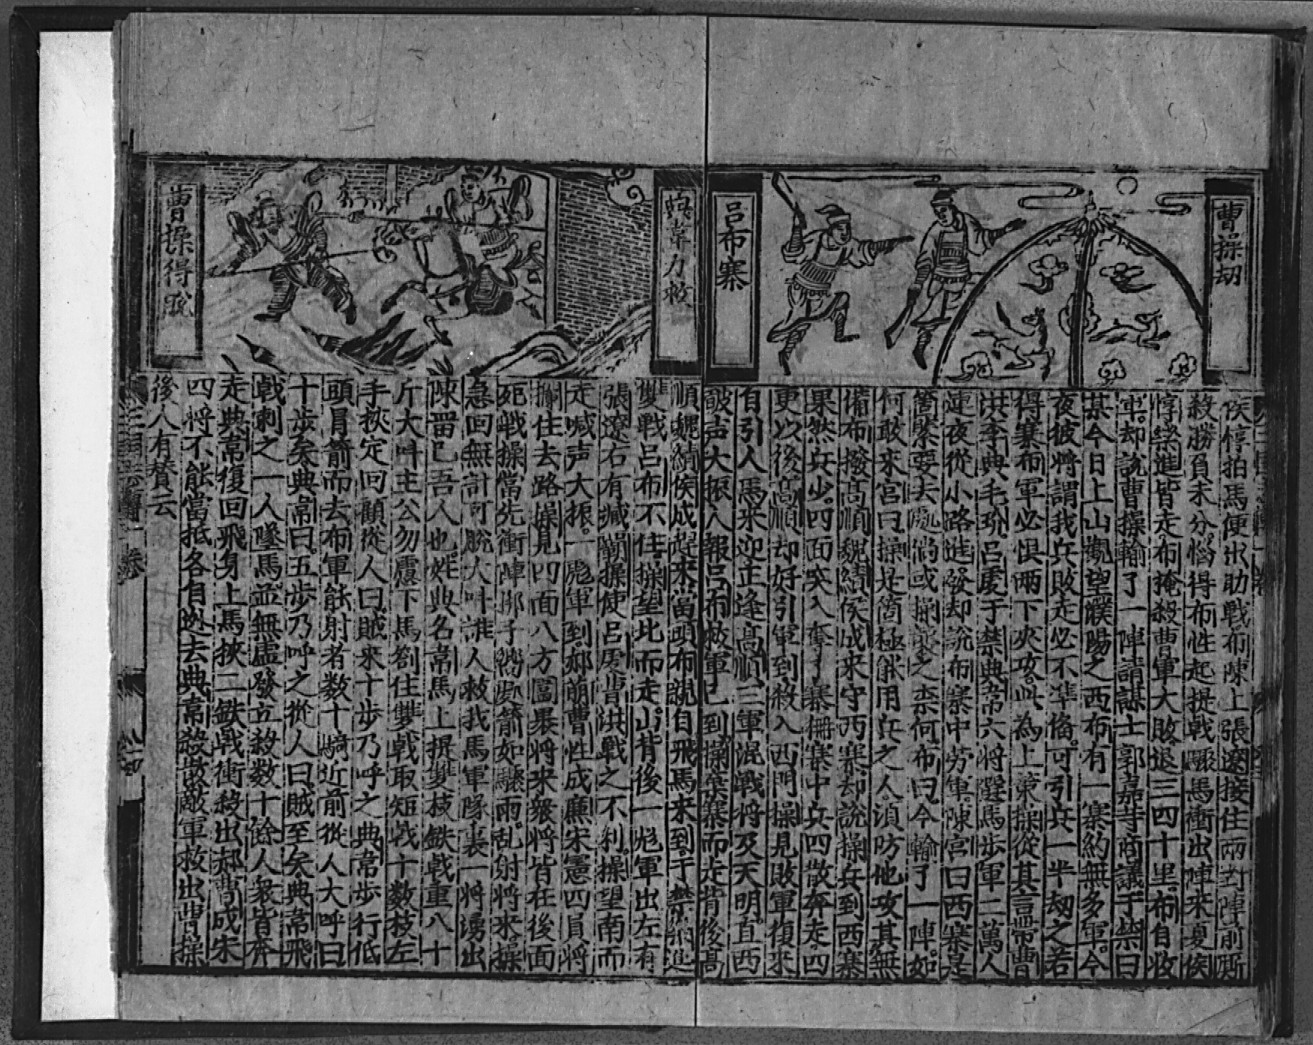 曹操刼
呂布寨
侯惇拍馬便出助戰布陳上張遼接住兩對陣前厮
殺勝負未分惱得布性起提戟驟馬衝出陣來夏侯
惇樂進皆走布掩殺曹軍大敗退三四十里布自收
軍却說曹操輸了一陣請謀士郭嘉等商議于禁曰
某今日上山觀望濮陽之西布有一寨約無多軍今
夜彼將謂我兵敗走必不準俻可引兵一半刼之若
得寨布軍必惧兩下夾攻此為上策操從其言帶曹
洪李典毛玠呂虔于禁典韋六將選馬步軍二萬人
連夜從小路進發却說布寨中劳軍陳宮曰西寨是
箇緊要去處倘或操襲之柰何布曰今輸了一陣如
何敢來宮曰操是箇極能用兵之人須防他攻其無
備布撥高順魏續侯成來守西寨却說操兵到西寨
果然兵少四面突入奪了寨柵寨中兵四散奔走四
更以後高順却好引軍到殺入西門操見敗軍復來
自引人馬來迎正逢高順三軍混戰將及天明直西
皷声大振人報呂布救軍已到操棄寨而走背後高
典韋力救
曹操得脫
順魏續侯成趕來當頭布親自飛馬來到于禁樂進
雙戰呂布不住操望北而走山背後一彪軍出左有
張遼右有臧霸操使呂虔曹洪戰之不利操望南而
走喊声大振一彪軍到郝萌曹性成廉宋憲四員將
攔住去路操見四面八方圍裹將來衆將皆在後面
死戰操當先衝陣梆子響處箭如驟雨乱射將來操
急回無計可脫大叫誰人救我馬軍隊裏一將湧出
陳畱巳吾人也姓典名韋馬上提雙枝鉄戟重八十
斤大叫主公勿慮下馬劄住雙戟取短戟十數枝在
手挾定回顧從人曰賊來十步乃呼之典韋步行低
頭冒箭而去布軍能射者数十騎近前從人大呼曰
十步矣典韋曰五步乃呼之從人曰賊至矣典韋飛
戟刺之一人墜馬並無虛發立殺数十餘人衆皆奔
走典韋復回飛身上馬挾二鉄戟衝殺出郝曹成宋
四將不能當抵各自逃去典韋殺散敵軍救出曹操
後人有贊云